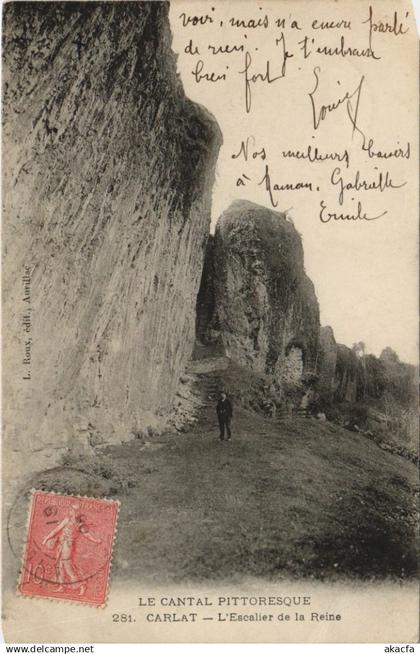 voir, mais n'a encore parlé
de rien. Je t'embrasse
bien fort
Louise
Nos meilleurs baisers
à Maman, Gabrielle
Emile
L. Roux, édit., Aurillac
10
LE CANTAL PITTORESQUE
281. CARLAT — L'Escalier de la Reine
www.delcampe.net
akacfa